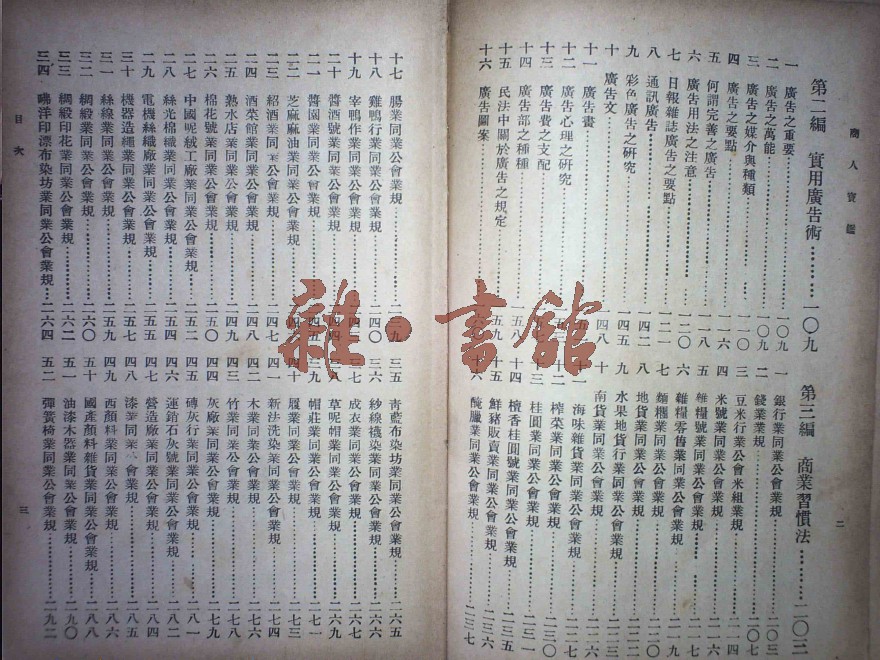 商人寶鑑
第二編 實用廣告術………一〇九
一 廣告之重要………一〇九
二 廣告之萬能………一〇九
三 廣告之媒介與種類………一〇三
四 廣告之要點
五 何謂完善之廣告………一一八
六 廣告用法之注意………一二〇
七 日報雜誌廣告之要點
八 通訊廣告………一四二
九 彩色廣告之研究………一四五
十 廣告文………一四八
十一 廣告畫
十二 廣告心理之研究
十三 廣告費之支配
十四 廣告部之種種………一五八
十五 民法中關於廣告之規定
十六 廣告圖案
第三編 商業習慣法………二〇三
一 銀行業同業公會業規………二〇三
二 錢業業規………二〇七
三 豆米行業公會米組業規
四 米號業同業公會業規
五 雜糧號業同業公會業規
六 雜糧零售業同業公會業規
七 麵糰業同業公會業規
八 地貨業同業公會業規
九 水果地貨行業同業公會業規
十 南貨業同業公會業規
海味雜貨業同業公會業規
榨菜業同業公會業規………二三〇
桂圓業同業公會業規
十四 檀香桂圓號業同業公會業規………二三五
十五 鮮豬販賣業同業公會業規………二三六
醃臘業同業公會業規………二三七
二
十七 腸業同業公會業規
十八 雞鴨行業同業公會業規………二四〇
十九 宰鴨作業同業公會業規
二十 醬酒號業同業公會業規
二一 醬園業同業公會業規
二二 芝麻麻油業同業公會業規
二三 紹酒業同業公會業規………二四七
二四 酒菜館業同業公會業規………二四八
二五 熟水店業同業公會業規………二四九
二六 棉花號業同業公會業規………二五〇
二七 中國呢絨工廠業同業公會業規………二五二
二八 絲光棉織業同業公會業規………二五四
二九 電機絲織廠業同業公會業規………二五五
三十 機器造繩業同業公會業規………二五七
三一 絲線業同業公會業規………二五九
三二 綢緞業同業公會業規………二六〇
三三 綢緞印花業同業公會業規………二六二
三四 嗶洋印漂布染坊業同業公會業規………二六四
三五 青藍布染坊業同業公會業規………二六五
三六 紗線襪染業同業公會業規………二六七
成衣業同業公會業規………二六八
草呢帽業同業公會業規………二六九
三九 帽莊業同業公會業規………二七一
履業同業公會業規………二七三
四一 新法洗染業同業公會業規………二七四
四二 木業同業公會業規………二七六
四三 竹業同業公會業規………二七八
四四 灰廠業同業公會業規………二七九
四五 磚灰行業同業公會業規………二八一
四六 運鉛石灰號業同業公會業規………二八二
四七 營造廠業同業公會業規………二八四
四八 漆業同業公會業規………二八五
四九 西顏料業同業公會業規………二八六
五十 國產顏料雜貨業同業公會業規………二八八
五一 油漆木器業同業公會業規………二九〇
五二 彈簧椅業同業公會業規………二九二
目次
三
雜·書館